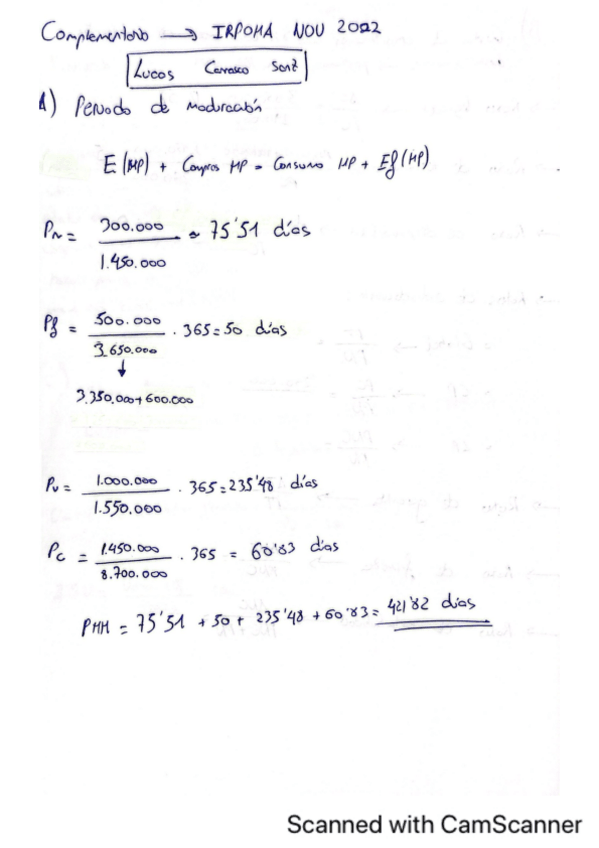 Complementario → IRPOMA NOV 2022
Lucas Carrasco Sanz
1) Periodo de maduración
E (MP) + Compras MP = Consumo MP + Ef (MP)
Pa = 300.000 / 1.450.000 = 75'51 días
Pf = 500.000 / 3.650.000 . 365 = 50 días
↓
3.350.000 + 600.000
Pv = 1.000.000 / 1.550.000 . 365 = 235'48 días
Pc = 1.450.000 / 8.700.000 . 365 = 60'83 días
PMM = 75'51 + 50 + 235'48 + 60'83 = 421'82 días
Scanned with CamScanner